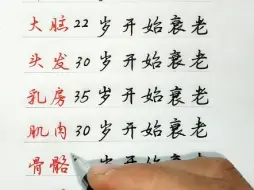 大脑22岁开始衰老
头发30岁开始衰老
乳房35岁开始衰老
肌肉30岁开始衰老
骨骼 开始衰老